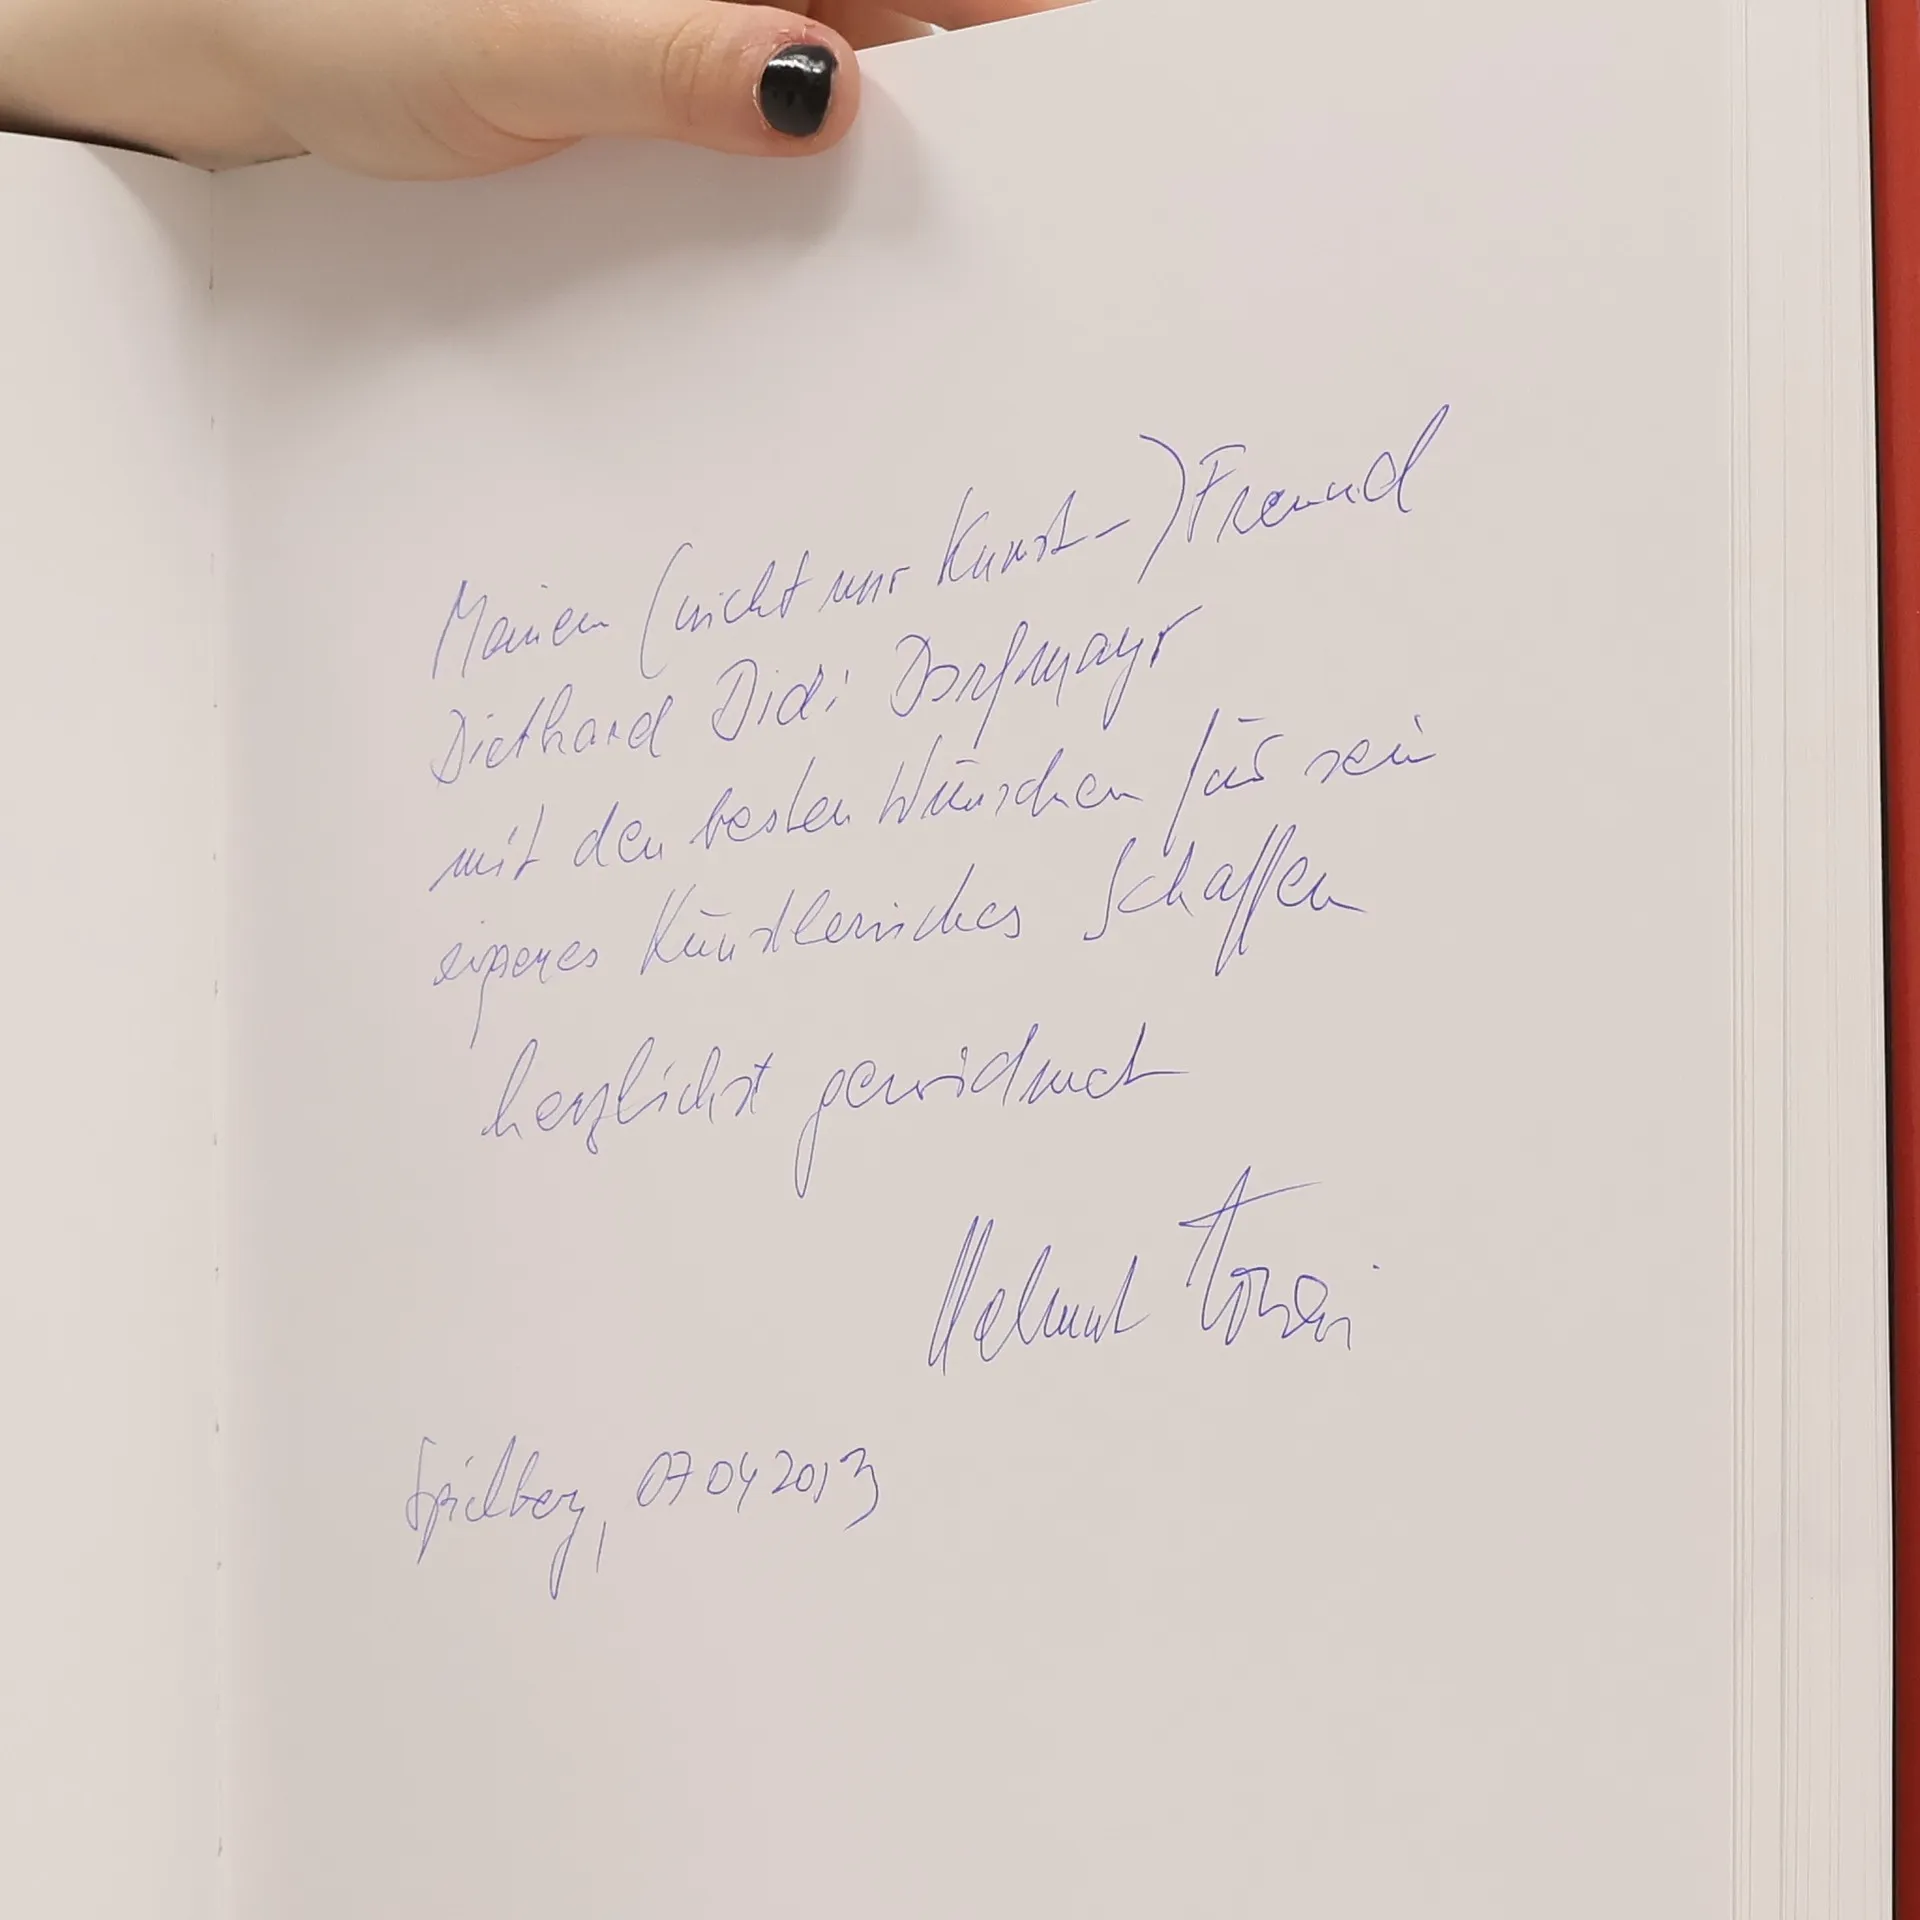 Meinem (nicht nur Kunst-) Freund
Diethard Didi Dorfmayr
mit den besten Wünschen für sein
eigenes künstlerisches Schaffen
herzlichst gewidmet
Helmut
Spielberg, 07 04 2013